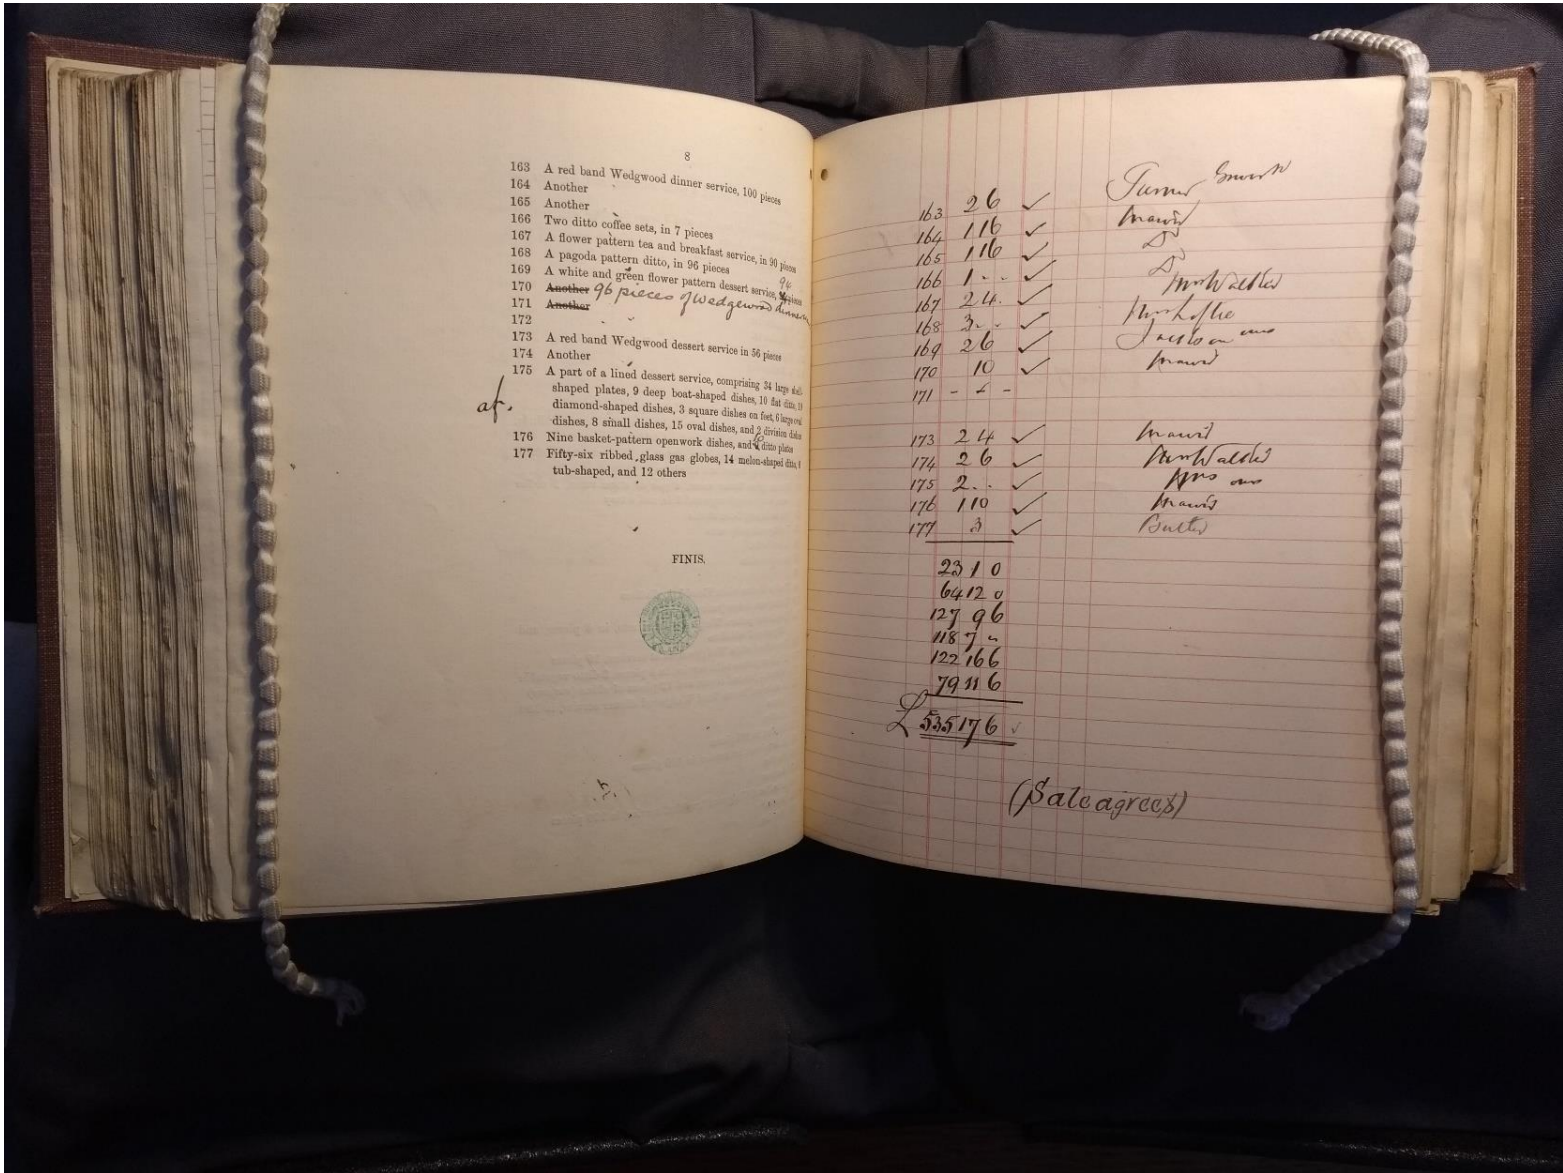 8
163 A red band Wedgwood dinner service, 100 pieces
164 Another
165 Another
166 Two ditto coffee sets, in 7 pieces
167 A flower pattern tea and breakfast service, in 90 pieces
168 A pagoda pattern ditto, in 96 pieces
94
169 A white and green flower pattern dessert service, pieces
170 Another 96 pieces of Wedgewood
171 Another
172
173 A red band Wedgwood dessert service in 56 pieces
174 Another
175 A part of a lined dessert service, comprising 34 large shell-
shaped plates, 9 deep boat-shaped dishes, 10 flat ditto,
af.
diamond-shaped dishes, 3 square dishes on feet, 6 large oval
dishes, 8 small dishes, 15 oval dishes, and 2 division dishes
176 Nine basket-pattern openwork dishes, and ditto plates
177 Fifty-six ribbed glass gas globes, 14 melon-shaped ditto,
tub-shaped, and 12 others
FINIS.
163 2 6 ✓ Turner
164 1 16 ✓
165 1 16 ✓
166 1 - - ✓
167 2 4 ✓
168 3 - - ✓
169 2 6 ✓ Jackson
170 10 ✓
171 - - -
173 2 4 ✓
174 2 6 ✓
175 2 - - ✓
176 1 10 ✓
177 3 ✓ Butler
23 1 0
64 12 0
127 9 6
118 7 "
122 16 6
79 11 6
£ 535 17 6
(Sale agrees)